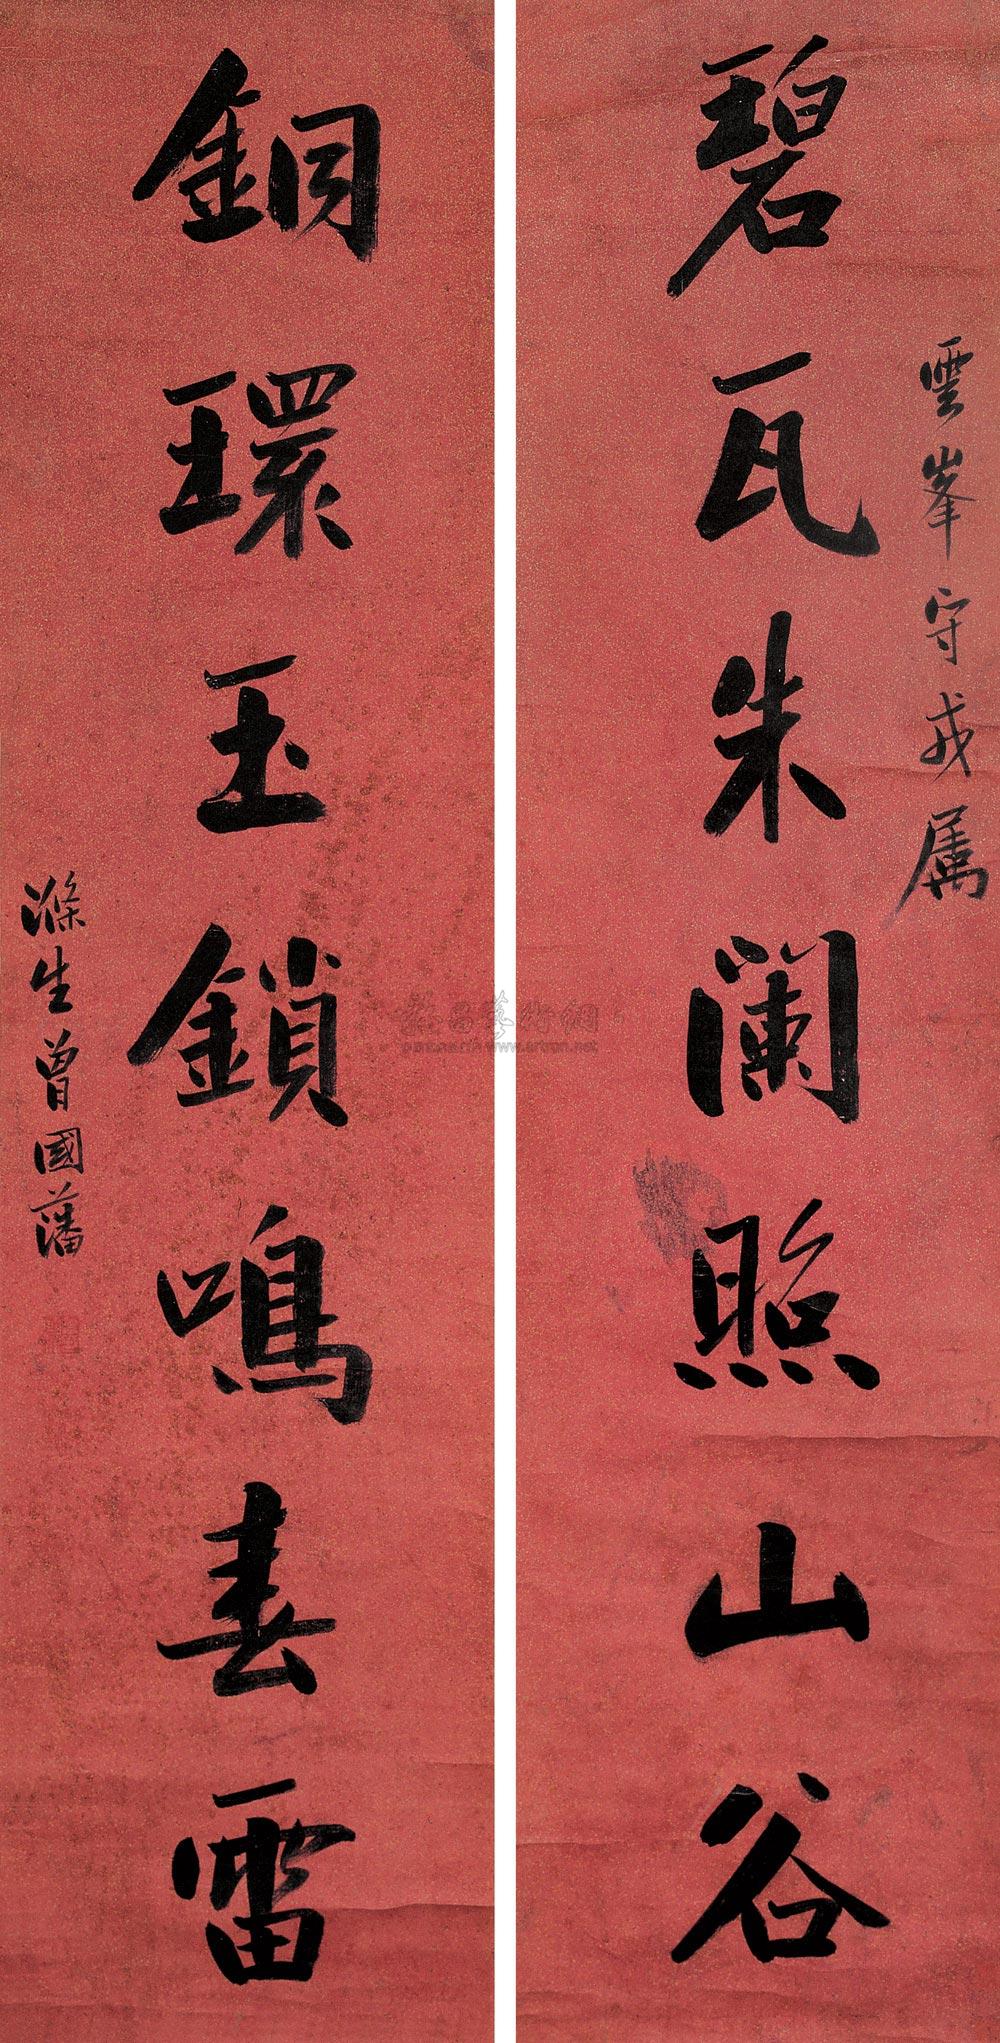 碧瓦朱闌照山谷
雲峯守戎属
銅環玉鎖鳴春雷
滌生曾國藩
www.artron.net